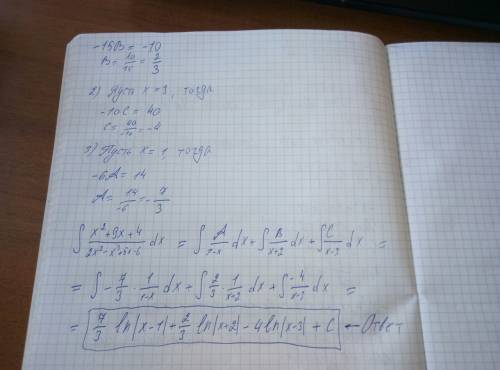 -15B = -10
B = \frac{10}{15} = \frac{2}{3}
2) Пусть x = 3, тогда
-10C = 40
C = \frac{40}{-10} = -4
3) Пусть x = 1, тогда
-6A = 14
A = \frac{14}{-6} = -\frac{7}{3}
∫ \frac{x²+9x+4}{2x²-x³+5x-6} dx = ∫ \frac{A}{1-x} dx + ∫ \frac{B}{x+2} dx + ∫ \frac{C}{x-3} dx =
= ∫ -\frac{7}{3} · \frac{1}{1-x} dx + ∫ \frac{2}{3} · \frac{1}{x+2} dx + ∫ \frac{-4}{x-3} dx =
= \frac{7}{3} ln|x-1| + \frac{2}{3} ln|x+2| - 4ln|x-3| + C ← Ответ